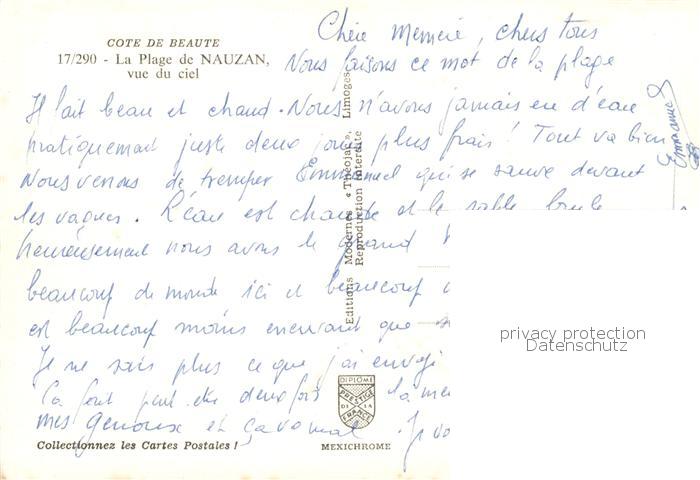 COTE DE BEAUTE
17/290 - La Plage de NAUZAN,
vue du ciel
Chère Mémère, chers tous
Nous faisons ce mot de la plage
Il fait beau et chaud. Nous n'avons jamais eu d'eau
pratiquement juste deux jours plus frais ! Tout va bien
Nous venons de tremper Emmanuel qui se sauve devant
les vagues. L'eau est chaude et le sable brule
heureusement nous avons le grand
beaucoup de monde ici et beaucoup
est beaucoup moins que
Je ne sais plus ce que j'ai envoyé
Ca fait peut etre deux fois la
mes genoux et ça va mal. Je
Emmanuel
Editions Modernes « Théojac », Limoges
Reproduction Interdite
DIPLOME
PRESTIGE
DE LA
FRANCE
Collectionnez les Cartes Postales !
MEXICHROME
privacy protection
Datenschutz